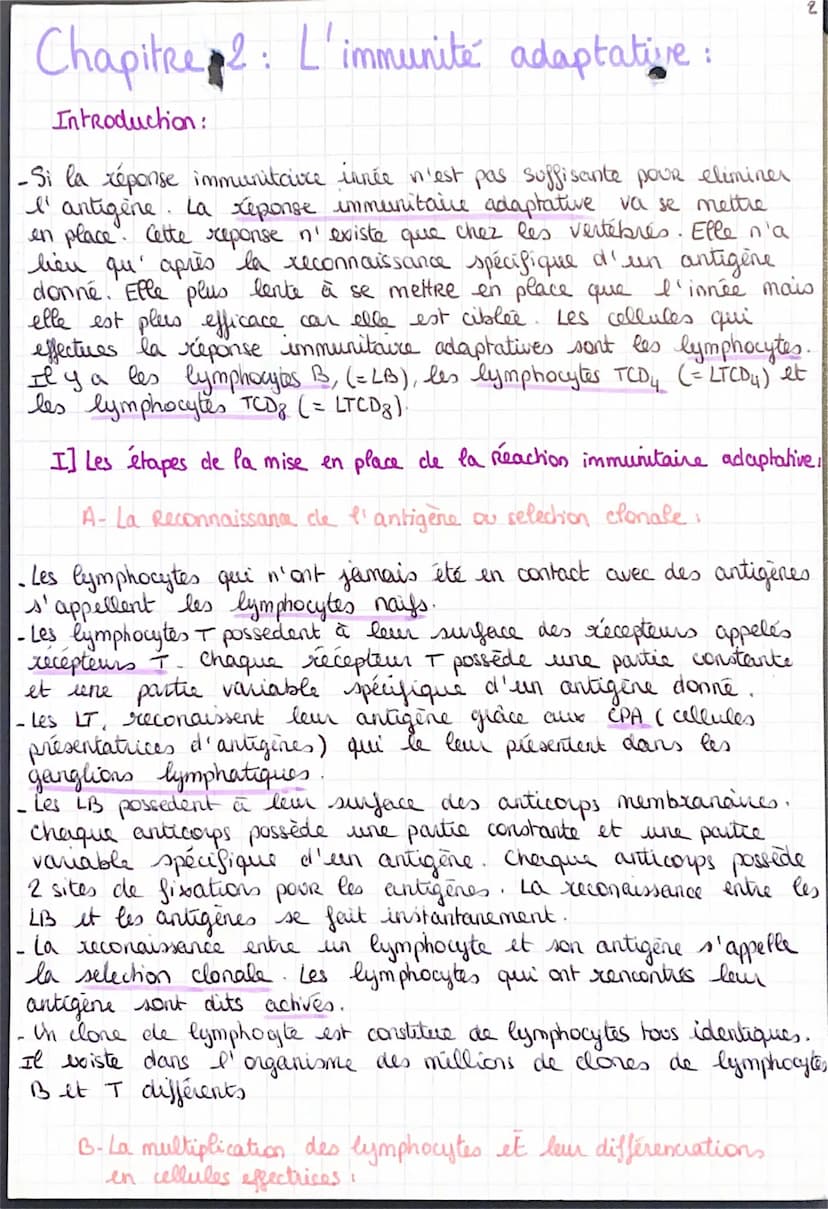 2
Chapitre 2 : L'immunité adaptative :
Introduction :
- Si la réponse immunitaire innée n'est pas suffisante pour eliminer
l'antigène. La réponse immunitaire adaptative va se mettre
en place. Cette reponse n'existe que chez les vertébrés. Elle n'a
lieu qu'après la reconnaissance spécifique d'un antigène
donné. Elle plus lente à se mettre en place que l'innée mais
elle est plus efficace car elle est ciblée. Les cellules qui
effectues la réponse immunitaire adaptatives sont les lymphocytes.
Il y a les lymphocytes B, (=LB), les lymphocytes TCD4 (=LTCD4) et
les lymphocytes TCD8 (= LTCD8).
I] Les étapes de la mise en place de la réaction immunitaire adaptative :
A- La Reconnaissance de l'antigène ou selection clonale :
- Les lymphocytes qui n'ont jamais été en contact avec des antigènes
s'appellent les lymphocytes naïfs.
- Les lymphocytes T possedent à leur surface des récepteurs appelés
récépteurs T. Chaque récepteur T possède une partie constante
et une partie variable spécifique d'un antigène donné.
- Les LT, reconaissent leur antigène grâce aux CPA (cellules
présentatrices d'antigènes) qui le leur présentent dans les
ganglions lymphatiques.
- Les LB possedent à leur surface des anticorps membranaires.
chaque anticorps possède une partie constante et une partie
variable spécifique d'un antigène. Chaque anticorps possède
2 sites de fixations pour les antigènes. La reconaissance entre les
LB et les antigènes se fait instantanement.
- La reconaissance entre un lymphocyte et son antigène s'appelle
la selection clonale. Les lymphocytes qui ont rencontrés leur
antigène sont dits activés.
- Un clone de lymphocyte est constitué de lymphocytes tous identiques.
Il existe dans l'organisme des millions de clones de lymphocytes
B et T différents
B- La multiplication des lymphocytes et leur différenciations
en cellules effectrices :